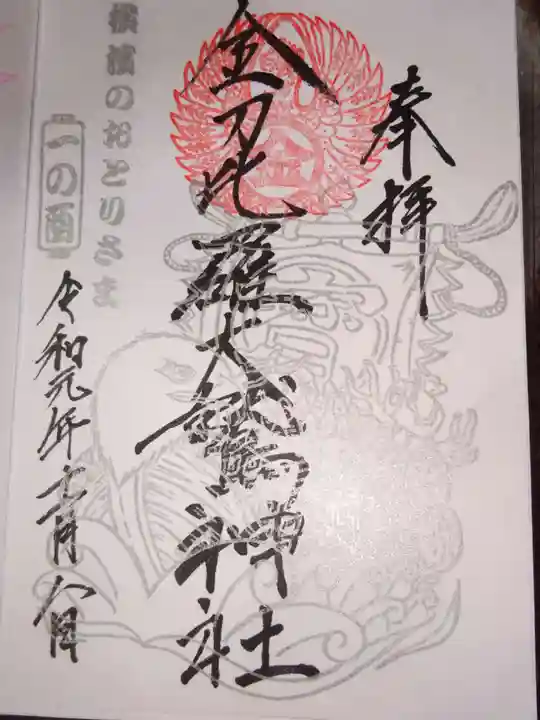 奉拝
金刀比羅大鷲神社
横濱のおとりさま
一の酉
令和元年十一月八日